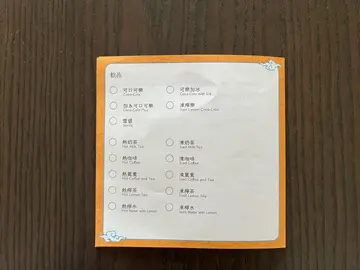 飲品
可口可樂
Coca-Cola
可樂加冰
Coca-Cola with Ice
加系可口可樂
Coca-Cola Plus
凍檸樂
Iced Lemon Coca-Cola
雪碧
Sprite
熱奶茶
Hot Milk Tea
凍奶茶
Iced Milk Tea
熱咖啡
Hot Coffee
凍咖啡
Iced Coffee
熱鴛鴦
Hot Coffee and Tea
凍鴛鴦
Iced Coffee and Tea
熱檸茶
Hot Lemon Tea
凍檸茶
Iced Lemon Tea
熱檸水
Hot Water with Lemon
凍檸水
Iced Water with Lemon